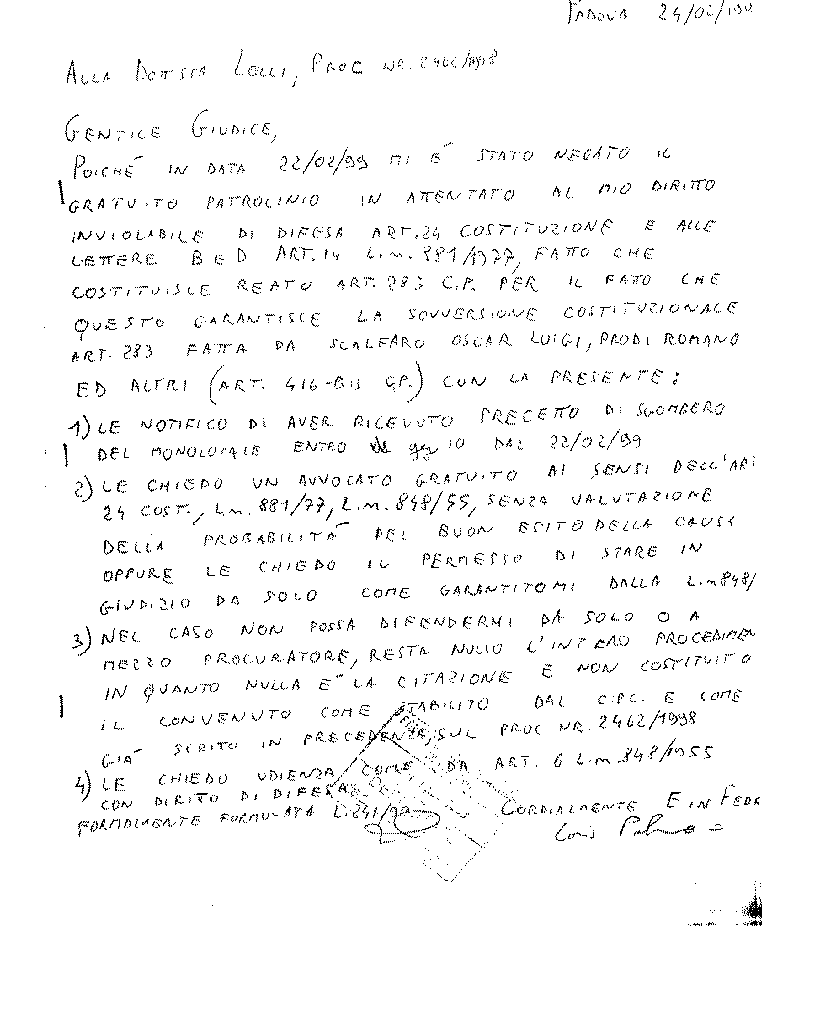 PADOVA 24/02/199
ALLA DOTT.SSA LOLLI, PROC NR. 2462/1998
GENTILE GIUDICE,
POICHÉ IN DATA 22/02/99 MI È STATO NEGATO IL
GRATUITO PATROCINIO IN ATTENTATO AL MIO DIRITTO
INVIOLABILE DI DIFESA ART.24 COSTITUZIONE E ALLE
LETTERE B E D ART.14 L.n. 881/1977, FATTO CHE
COSTITUISCE REATO ART. 283 C.P. PER IL FATO CHE
QUESTO GARANTISCE LA SOVVERSIONE COSTITUZIONALE
ART. 283 FATTA DA SCALFARO OSCAR LUIGI, PRODI ROMANO
ED ALTRI (ART. 416-BIS C.P.) CON LA PRESENTE:
1) LE NOTIFICO DI AVER RICEVUTO PRECETTO DI SGOMBERO
DEL MONOLOCALE ENTRO gg 10 DAL 22/02/99
2) LE CHIEDO UN AVVOCATO GRATUITO AI SENSI DELL'ART
24 COST., L.n. 881/77, L.n. 848/55, SENZA VALUTAZIONE
DELLA PROBABILITÀ DEL BUON ESITO DELLA CAUSA
OPPURE LE CHIEDO IL PERMESSO DI STARE IN
GIUDIZIO DA SOLO COME GARANTITOMI DALLA L.n 848/
3) NEL CASO NON POSSA DIFENDERMI DA SOLO O A
MEZZO PROCURATORE, RESTA NULLO L'INTERO PROCEDIMEN
IN QUANTO NULLA È LA CITAZIONE E NON COSTITUITO
IL CONVENUTO COME STABILITO DAL C.P.C. E COME
GIÀ SCRITO IN PRECEDENZA, SUL PROC NR. 2462/1998
4) LE CHIEDO UDIENZA COME DA ART. 6 L.n. 848/1955
CON DIRITO DI DIFESA
FORMALMENTE FORMULATA L.241/90 CORDIALMENTE E IN FEDE